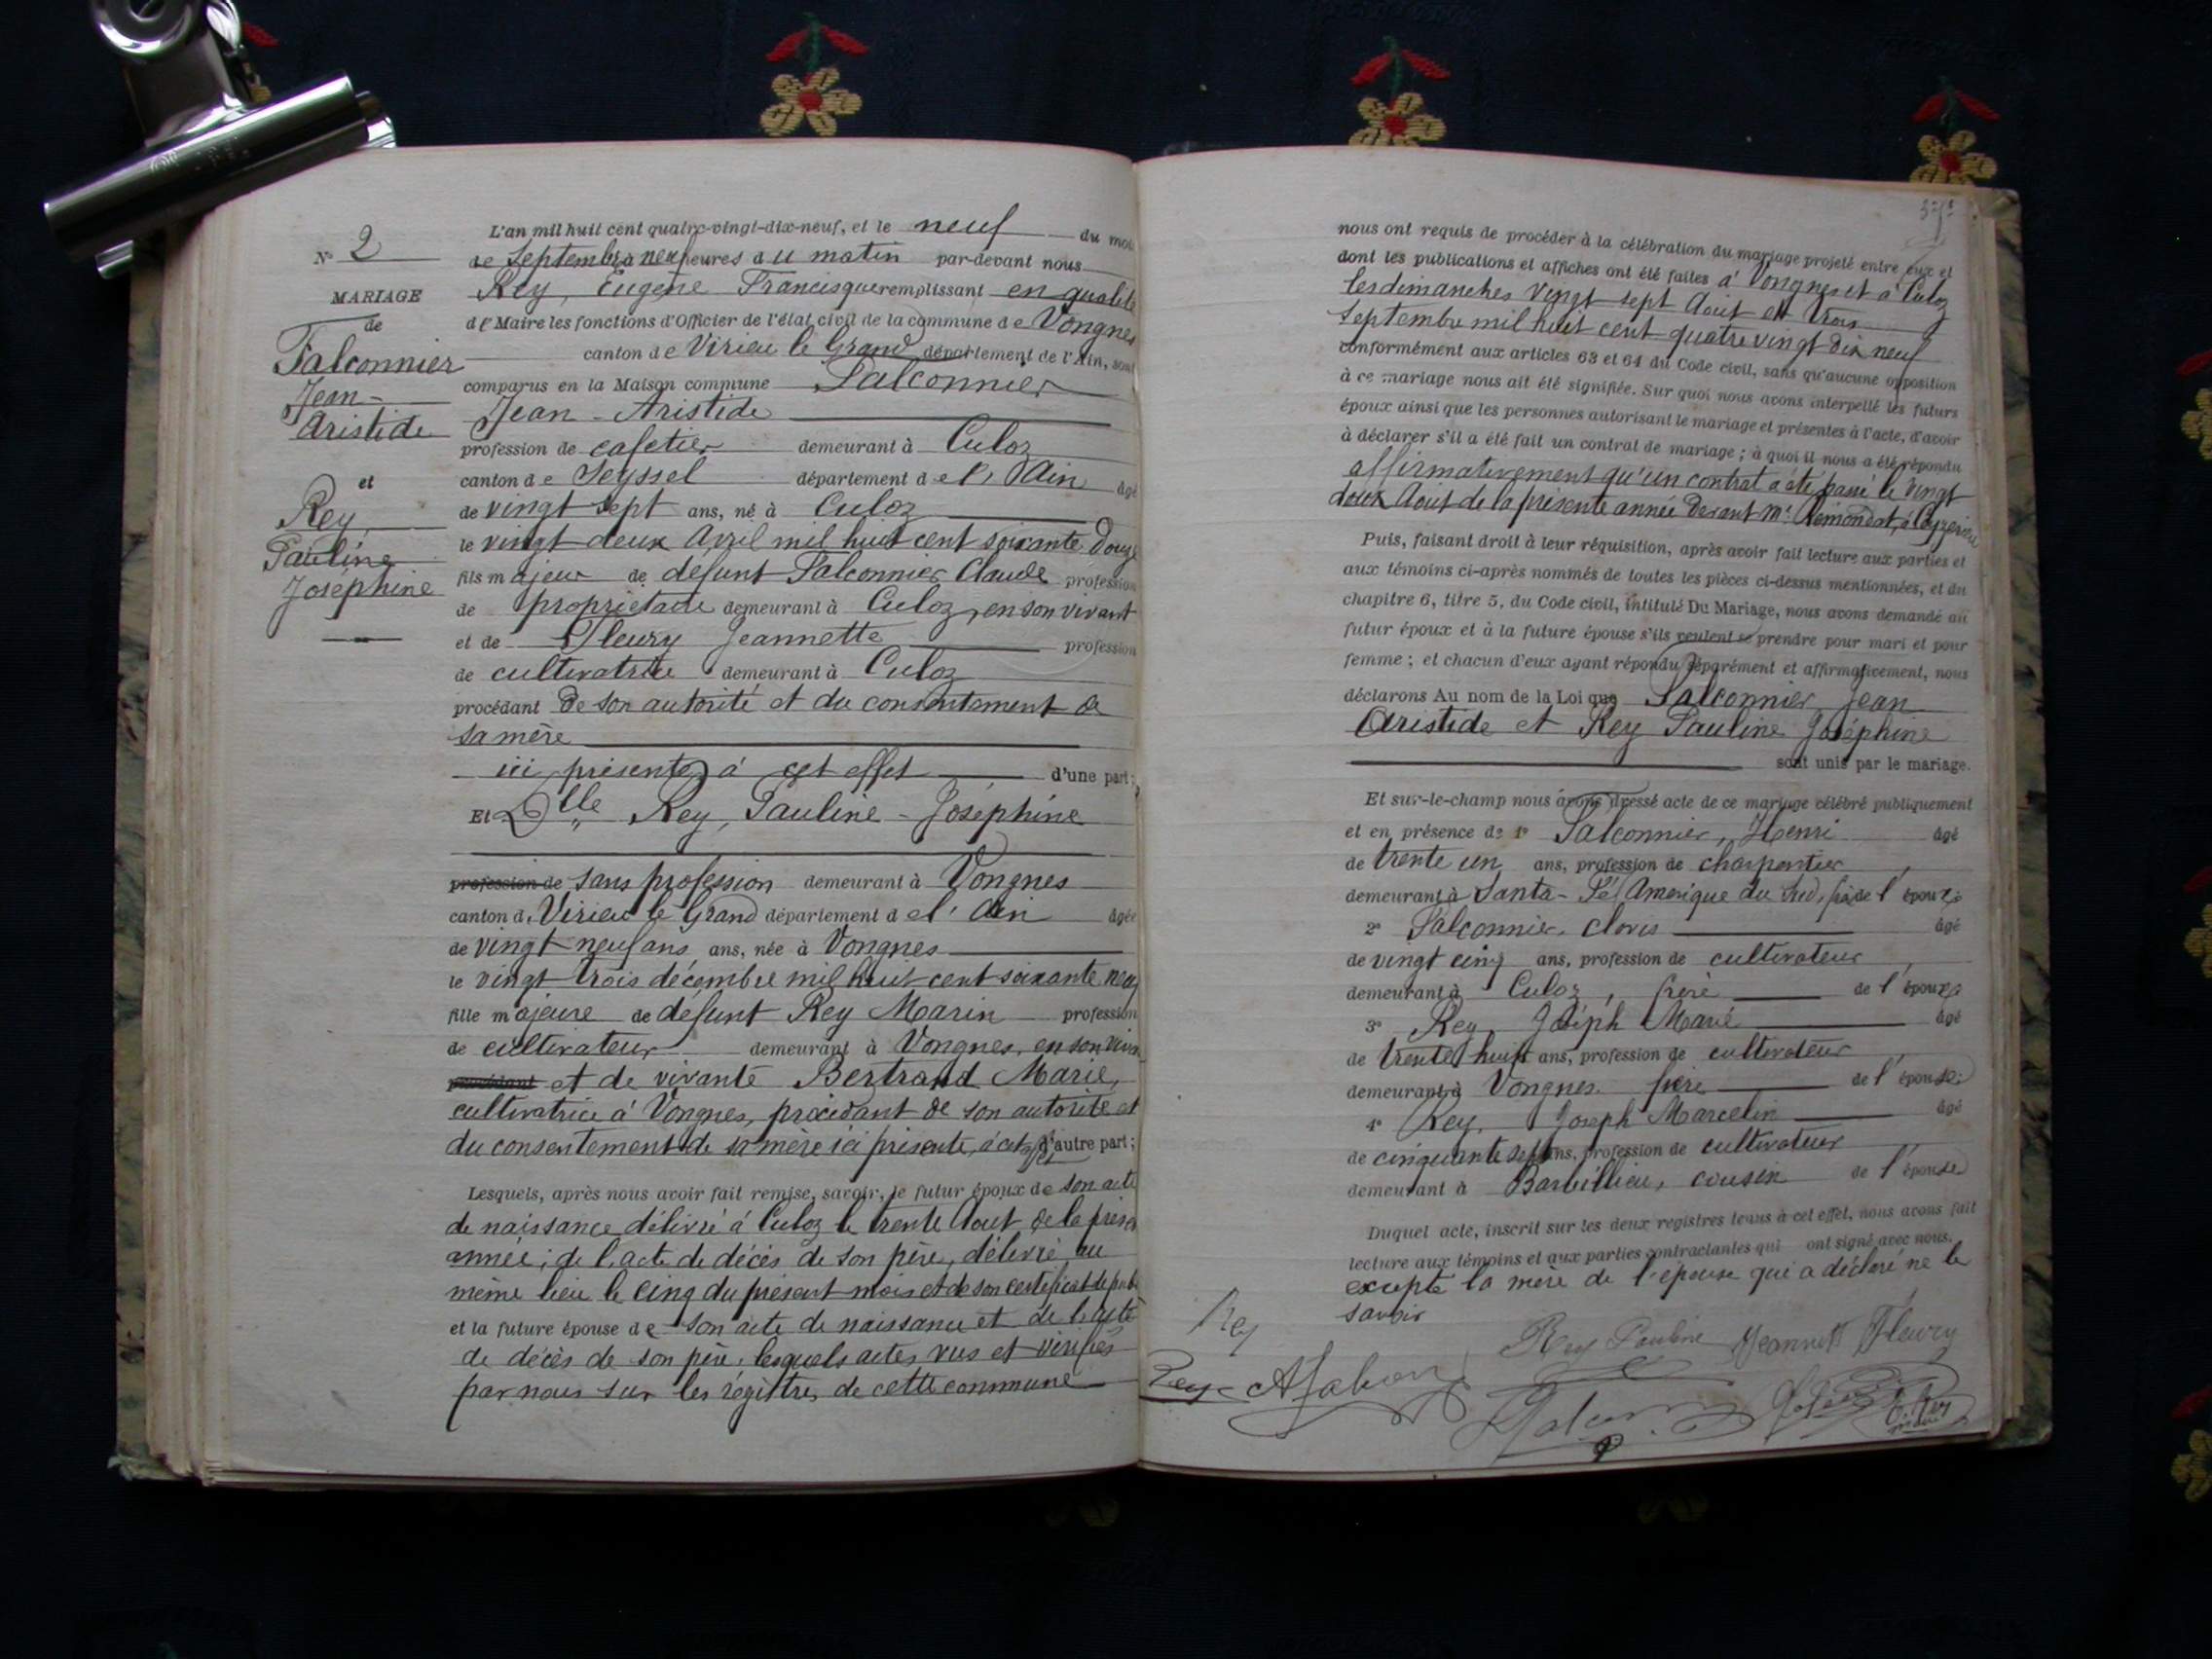 N° 2
MARIAGE
de
Falconnier
Jean-
Aristide
et
Rey
Pauline
Joséphine
L'an mil huit cent quatre-vingt-dix-neuf, et le neuf du mois
de Septembre à neuf heures du matin par-devant nous
Rey, Eugène Francisque remplissant en qualité
de Maire les fonctions d'Officier de l'état civil de la commune de Vongnes
canton de Virieu le Grand département de l'Ain, sont
comparus en la Maison commune Falconnier
Jean - Aristide
profession de cafetier demeurant à Culoz
canton de Seyssel département de l'Ain âgé
de vingt sept ans, né à Culoz
le vingt deux Avril mil huit cent soixante douze
fils majeur de défunt Falconnier Claude profession
de propriétaire demeurant à Culoz, en son vivant
et de Fleury Jeannette profession
de cultivatrice demeurant à Culoz
procédant de son autorité et du consentement de
sa mère
ici présente à cet effet d'une part;
Et Dlle Rey, Pauline - Joséphine
profession de sans profession demeurant à Vongnes
canton d. Virieu le Grand département de l'Ain âgée
de vingt neuf ans ans, née à Vongnes
le vingt trois décembre mil huit cent soixante neuf
fille majeure de défunt Rey Marin profession
de cultivateur demeurant à Vongnes, en son vivant
procédant et de vivante Bertrand Marie,
cultivatrice à Vongnes, procédant de son autorité et
du consentement de sa mère ici présente, à cet effet d'autre part;
Lesquels, après nous avoir fait remise, savoir, le futur époux de son acte
de naissance délivré à Culoz le trente Aout de la présente
année; de l'acte de décès de son père, délivré au
même lieu le cinq du présent mois et de son certificat de publ
et la future épouse de son acte de naissance et de l'acte
de décès de son père, lesquels actes vus et vérifiés
par nous sur les régistres de cette commune
nous ont requis de procéder à la célébration du mariage projeté entre eux et
dont les publications et affiches ont été faites à Vongnes et à Culoz
les dimanches vingt sept Aout et trois
Septembre mil huit cent quatre vingt dix neuf
conformément aux articles 63 et 64 du Code civil, sans qu'aucune opposition
à ce mariage nous ait été signifiée. Sur quoi nous avons interpellé les futurs
époux ainsi que les personnes autorisant le mariage et présentes à l'acte, d'avoir
à déclarer s'il a été fait un contrat de mariage; à quoi il nous a été répondu
affirmativement qu'un contrat a été passé le vingt
deux Aout de la présente année devant Me Rémondat, à Ceyzérieu
Puis, faisant droit à leur réquisition, après avoir fait lecture aux parties et
aux témoins ci-après nommés de toutes les pièces ci-dessus mentionnées, et du
chapitre 6, titre 5, du Code civil, intitulé Du Mariage, nous avons demandé au
futur époux et à la future épouse s'ils veulent se prendre pour mari et pour
femme; et chacun d'eux ayant répondu séparément et affirmativement, nous
déclarons Au nom de la Loi que Falconnier Jean
Aristide et Rey Pauline Joséphine
sont unis par le mariage.
Et sur-le-champ nous avons dressé acte de ce mariage célébré publiquement
et en présence de 1° Falconnier, Henri âgé
de trente un ans, profession de charpentier
demeurant à Santa-Fé, Amérique du Sud, frère de l'époux
2° Falconnier, Clovis âgé
de vingt cinq ans, profession de cultivateur
demeurant à Culoz, frère de l'époux
3° Rey, Joseph Marie âgé
de trente huit ans, profession de cultivateur
demeurant à Vongnes. frère de l'épouse
4° Rey, Joseph Marcelin âgé
de cinquante sept ans, profession de cultivateur
demeurant à Barbillieu, cousin de l'épouse
Duquel acte, inscrit sur les deux registres tenus à cet effet, nous avons fait
lecture aux témoins et aux parties contractantes qui ont signé avec nous,
excepté la mère de l'épouse qui a déclaré ne le
savoir
Rey
Rey Pauline Jeannette Fleury
Rey
E. Rey
maire